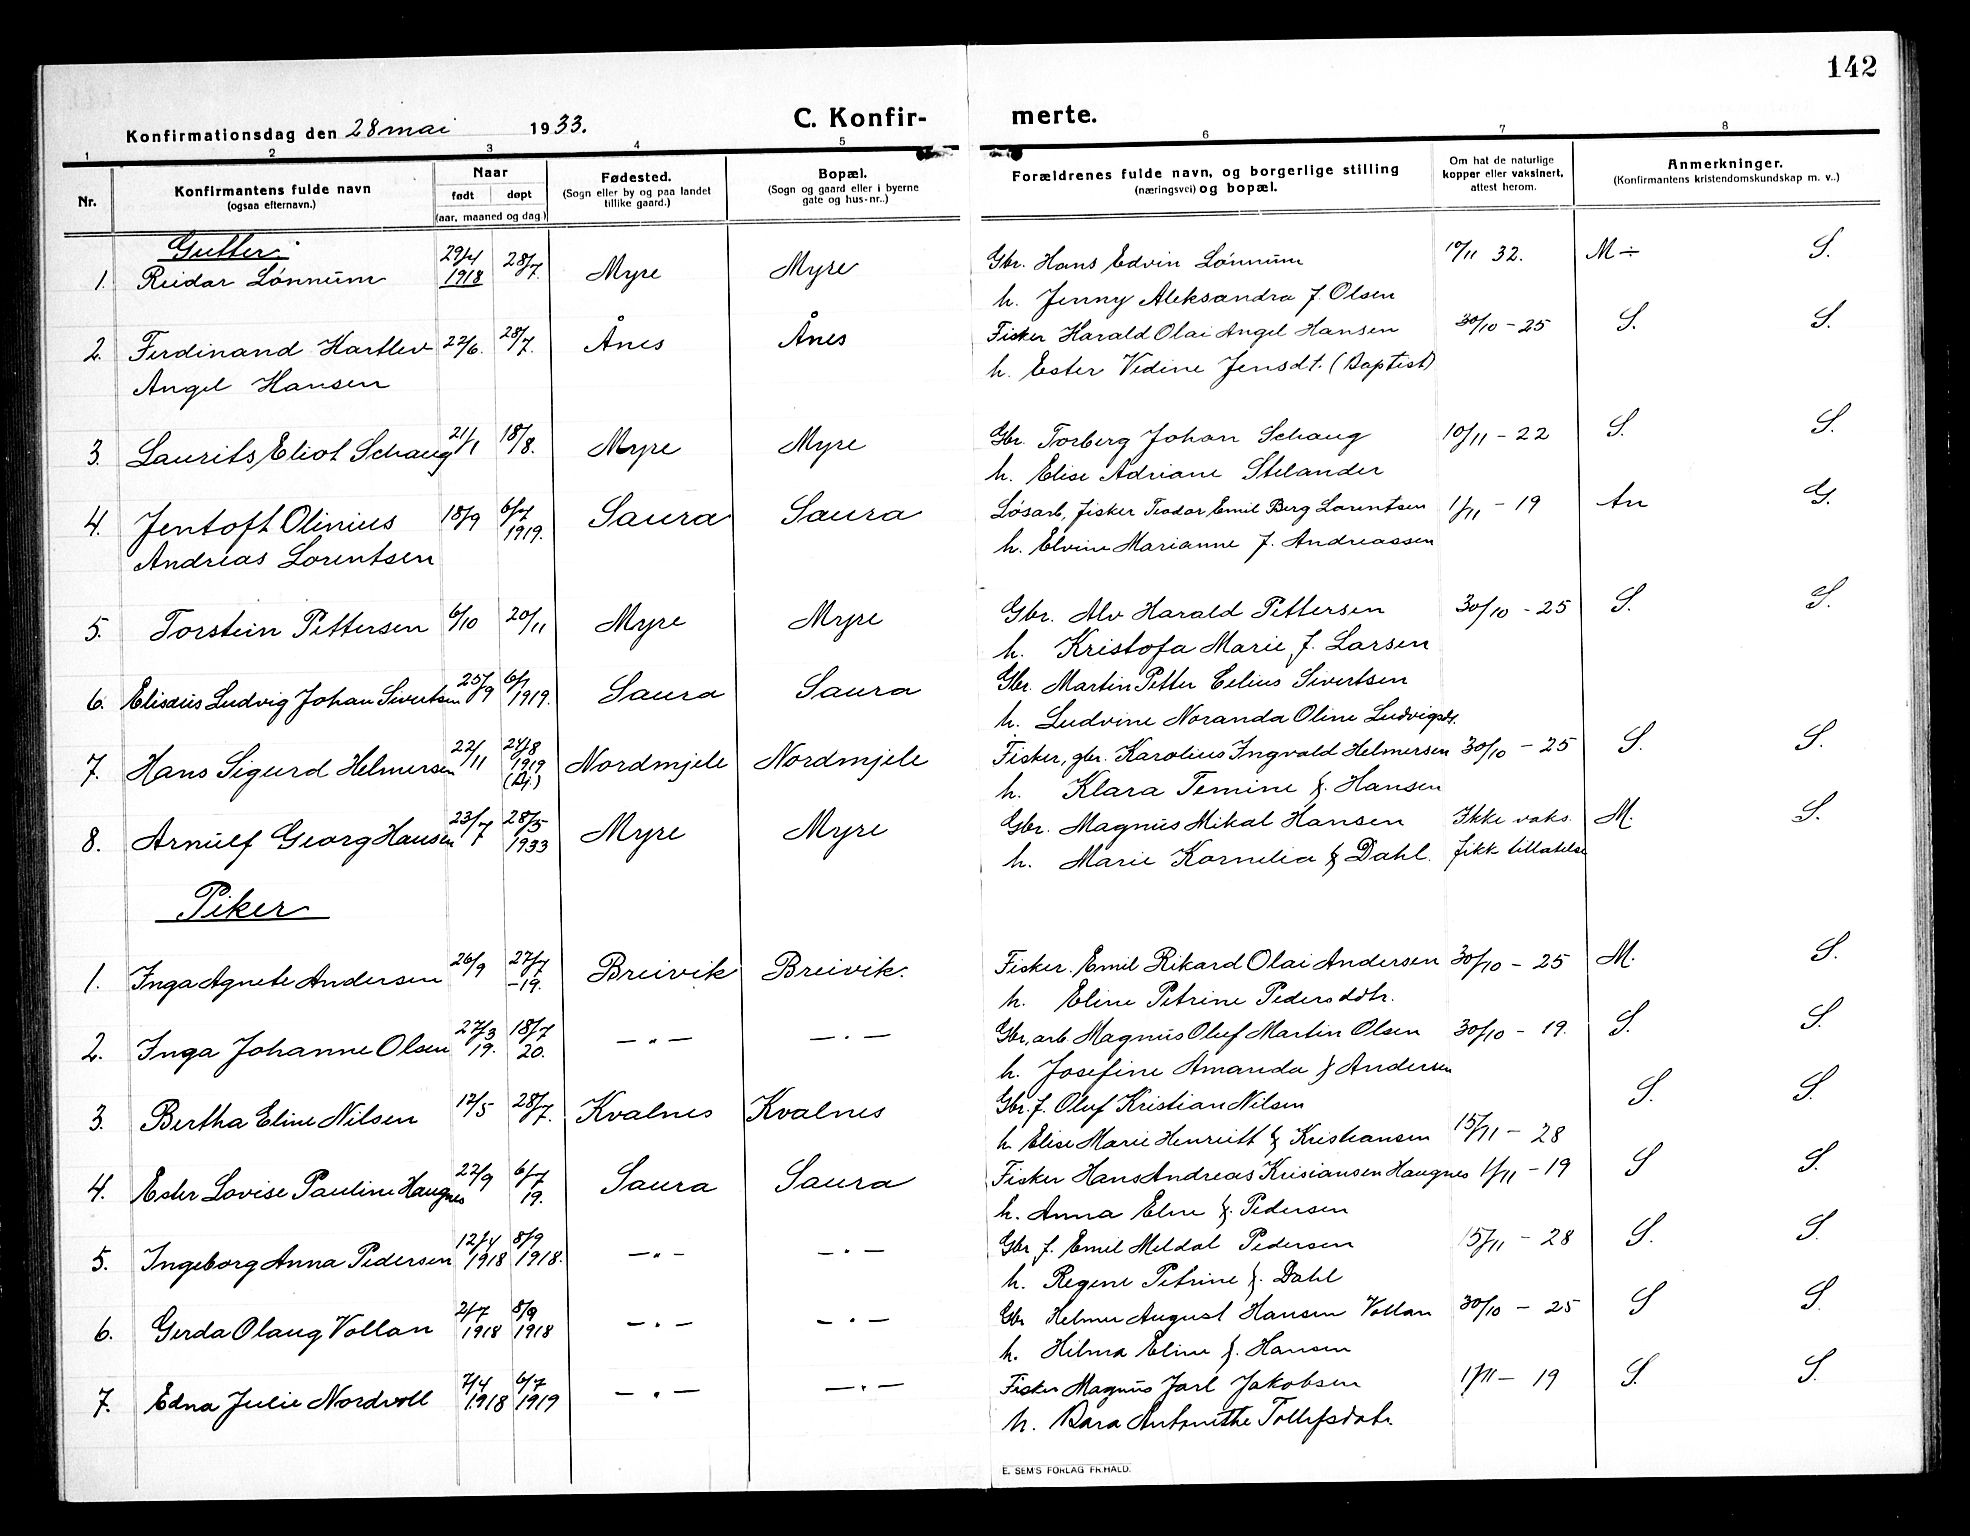 142
Konfirmationsdag den 28 mai 1933.
C. Konfir- merte.
1 2 3 4 5 6 7 8
Nr.
Konfirmantens fulde navn
(ogsaa efternavn.)
Naar
født døpt
(aar, maaned og dag.)
Fødested.
(Sogn eller by og paa landet
tillike gaard.)
Bopæl.
(Sogn og gaard eller i byerne
gate og hus-nr.)
Forældrenes fulde navn, og borgerlige stilling
(næringsvei) og bopæl.
Om hat de naturlige
kopper eller vaksinert,
attest herom.
Anmerkninger.
(Konfirmantens kristendomskundskap m. v..)
Gutter:
1. Reidar Lønnum 29/4 1918 28/7. Myre Myre Gbr. Hans Edvin Lønnum 10/11 32. M÷ S.
h. Jenny Aleksandra f. Olsen
2. Ferdinand Hartlev 22/6. 28/7. Ånes Ånes Fisker Harald Olai Angel Hansen 30/10 - 25 S. S.
Angel Hansen h. Ester Vedine Jensdt. (Baptist)
3. Laurits Eliot Schaug 21/1 18/8. Myre Myre Gbr. Torberg Johan Schaug 10/11 - 22 S. S.
h. Elise Adriane Stelander
4. Jentoft Olinius 18/9 6/7 1919. Saura Saura Løsarb, fisker Teodor Emil Berg Lorentsen 1/11 - 19 An G.
Andreas Lorentsen h. Elvine Marianne f. Andreassen
5. Torstein Pettersen 6/10 20/11 Myre Myre Gbr. Alv Harald Pettersen 30/10 - 25 S. S.
h. Kristofa Marie f. Larsen
6. Elisæus Ludvig Johan Sivertsen 25/9 6/7 1919. Saura Saura Gbr. Martin Petter Celius Sivertsen
h. Ludvine Noranda Oline Ludvigsdt.
7. Hans Sigurd Helmersen 22/11 24/8 1919 Nordmjele Nordmjele Fisker, gbr. Karolius Ingvald Helmersen 30/10 - 25 S. S.
h. Klara Temine f. Hansen
8. Arnulf Georg Hansen 23/7 28/5 1933 Myre Myre Gbr. Magnus Mikal Hansen Ikke vaks. M. S.
h. Marie Kornelia f Dahl. fikk tillatelse
Piker
1. Inga Agnete Andersen 26/9 27/7 -19. Breivik Breivik. Fisker. Emil Rikard Olai Andersen 30/10 - 25 M. S.
h. Eline Petrine Pedersdtr.
2. Inga Johanne Olsen 27/3 19. 18/7 20. — " — — " — Gbr, arb. Magnus Oluf Martin Olsen 30/10 - 19. S. S.
h. Josefine Amanda f Andersen
3. Bertha Eline Nilsen 12/5 28/7. Kvalnes Kvalnes Gbr. f. Oluf Kristian Nilsen S. S.
h. Elise Marie Henriett f Kristiansen 15/11 - 28
4. Ester Lovise Pauline Haugnes 22/9 6/7 19. Saura Saura Fisker Hans Andreas Krisiansen Haugnes 1/11 - 19 S S.
h. Anna Eline f. Pedersen
5. Ingeborg Anna Pedersen 12/4 1918 8/9 1918. — " — — " — Gbr f. Emil Meldal Pedersen 15/11 - 28 S. S.
h. Regene Petrine f. Dahl
6. Gerda Olaug Vollan 2/7 1918 8/9 1918 — " — — " — Gbr Helmer August Hansen Vollan 30/10 - 25 S S.
h. Hilma Eline f. Hansen
7. Edna Julie Nordvoll 7/4 1918 6/7 1919 — " — — " — Fisker Magnus Jarl Jakobsen 1/11 - 19 S. S.
h. Bara Antonethe Tollefsdatr.
E. SEM'S FORLAG FR.HALD.